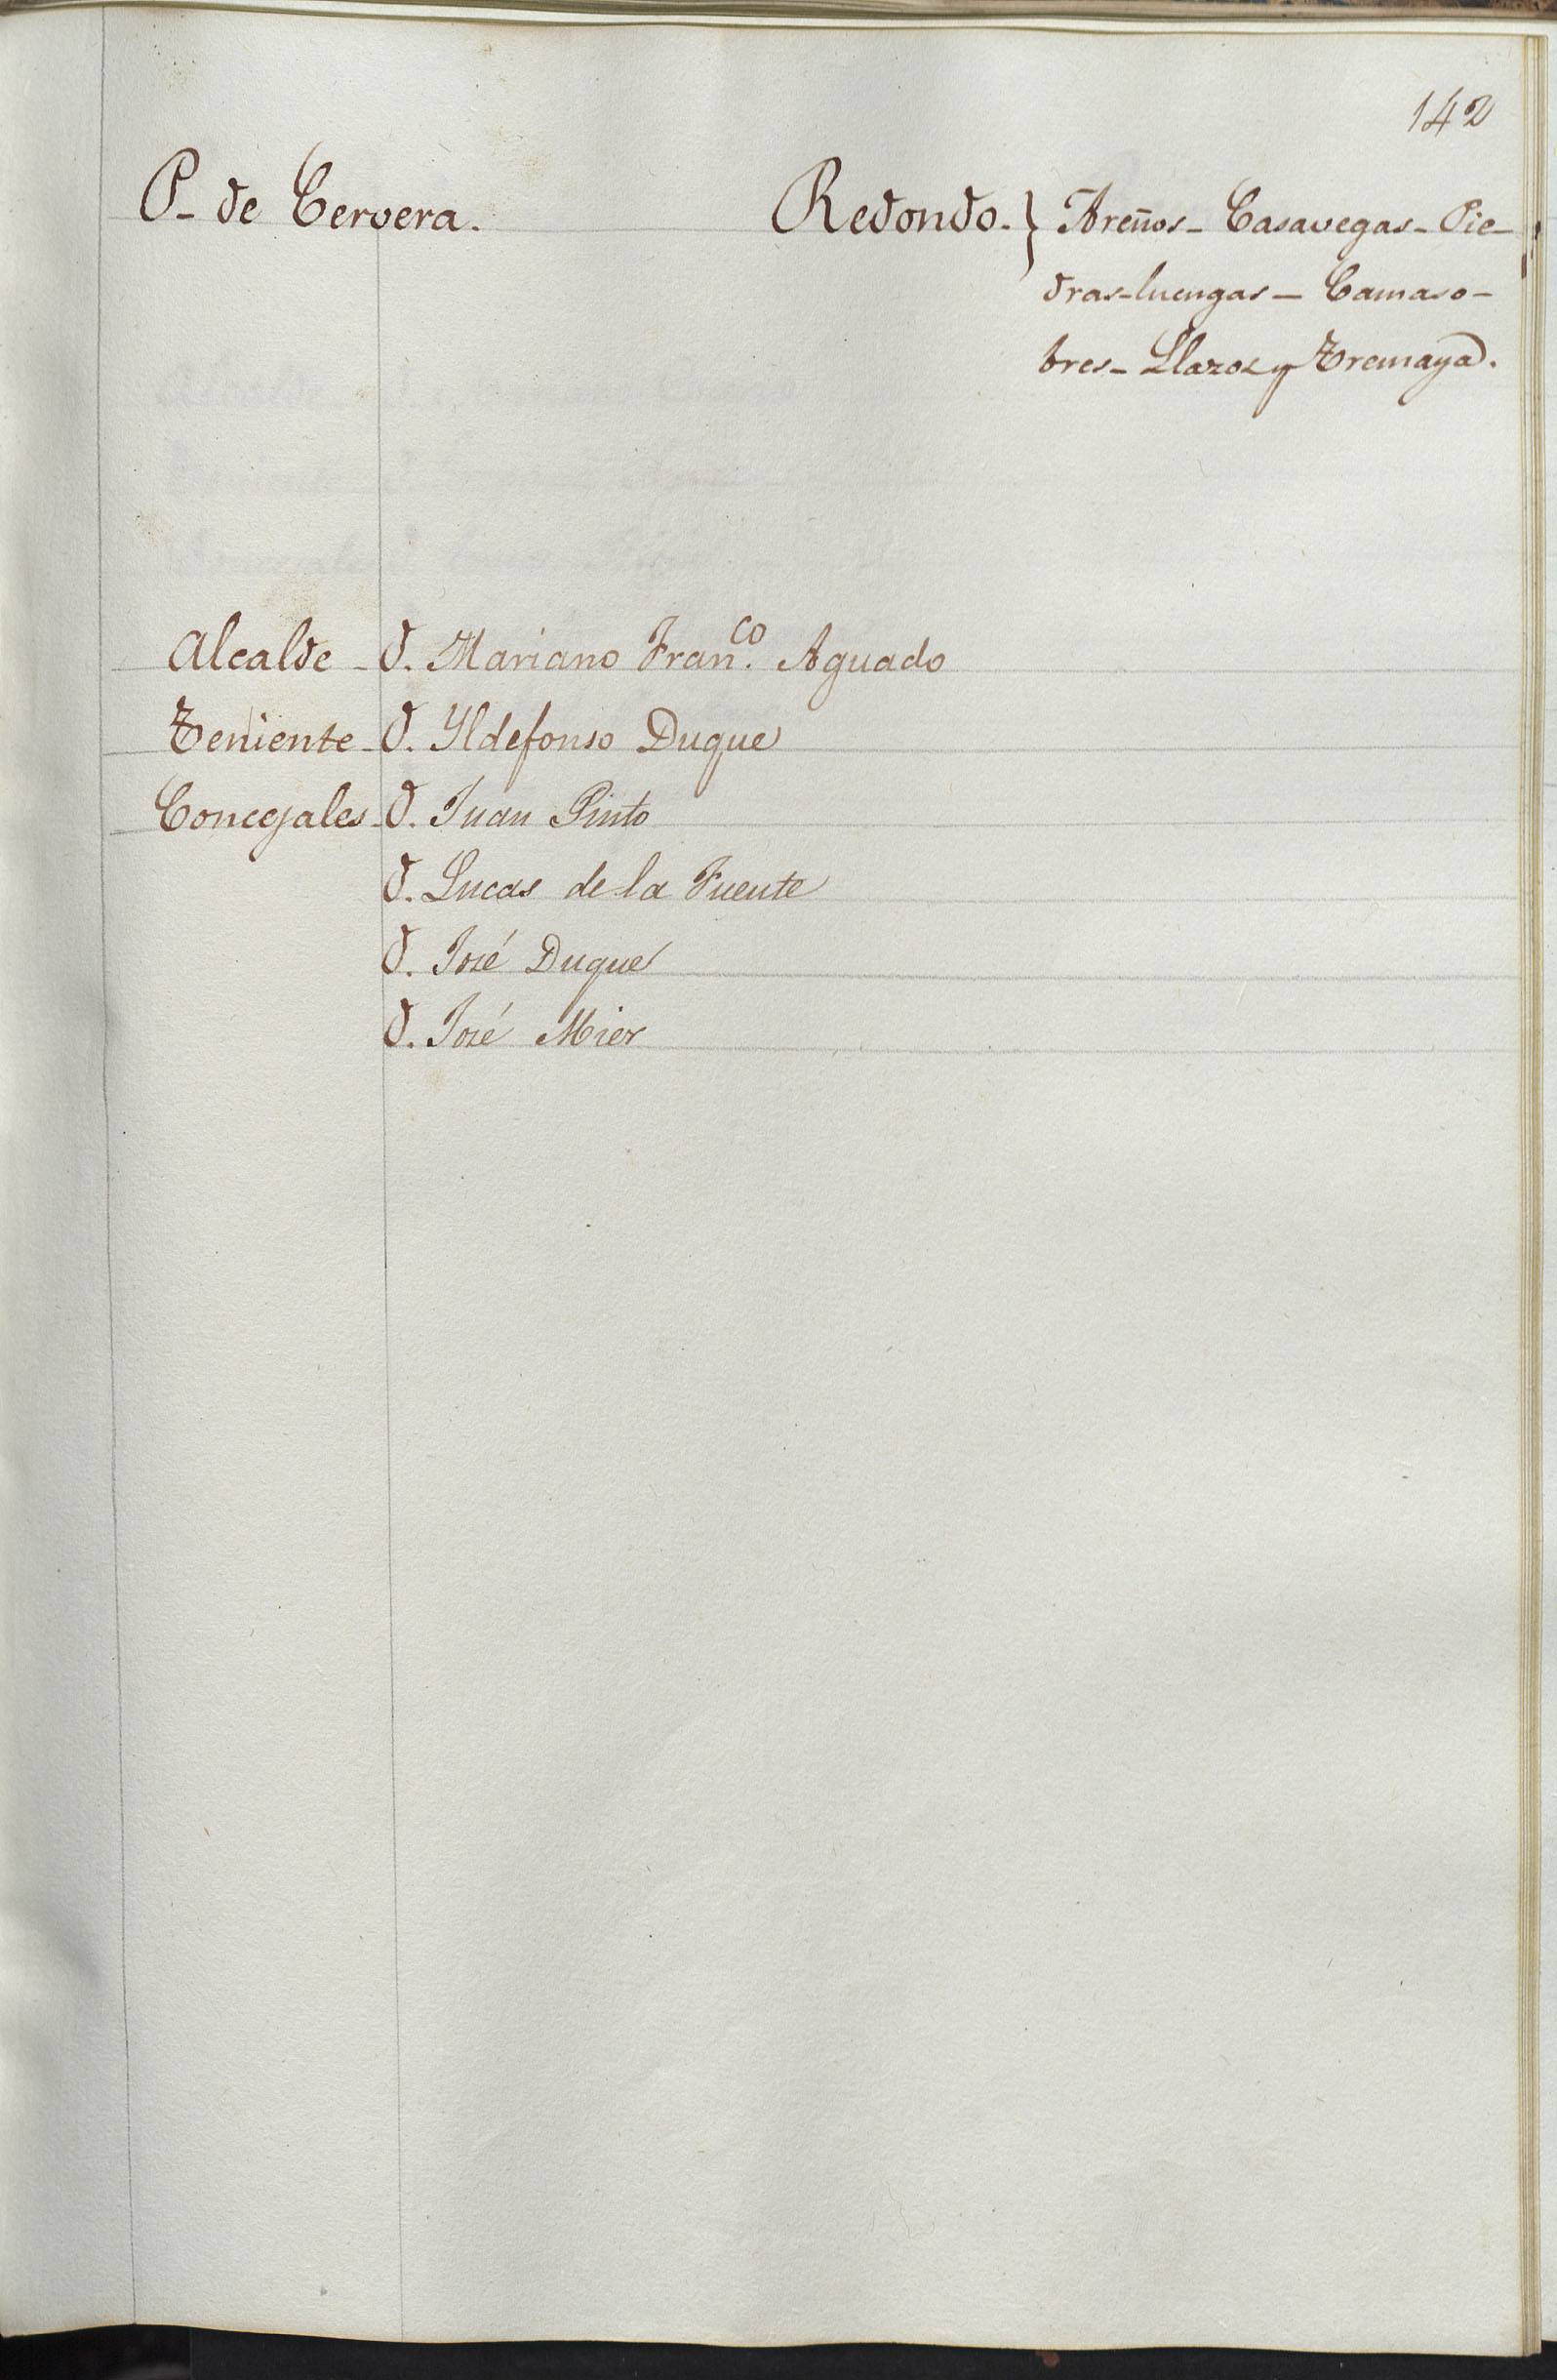 142
P- de Cervera.
Redondo. } Areños - Casavegas - Pie-
dras-luengas - Camaso-
bres - Llazos y Tremaya.
Alcalde - D. Mariano Fran.co Aguado
Teniente - D. Yldefonso Duque
Concejales - D. Juan Pinto
D. Lucas de la Fuente
D. José Duque
D. José Mier